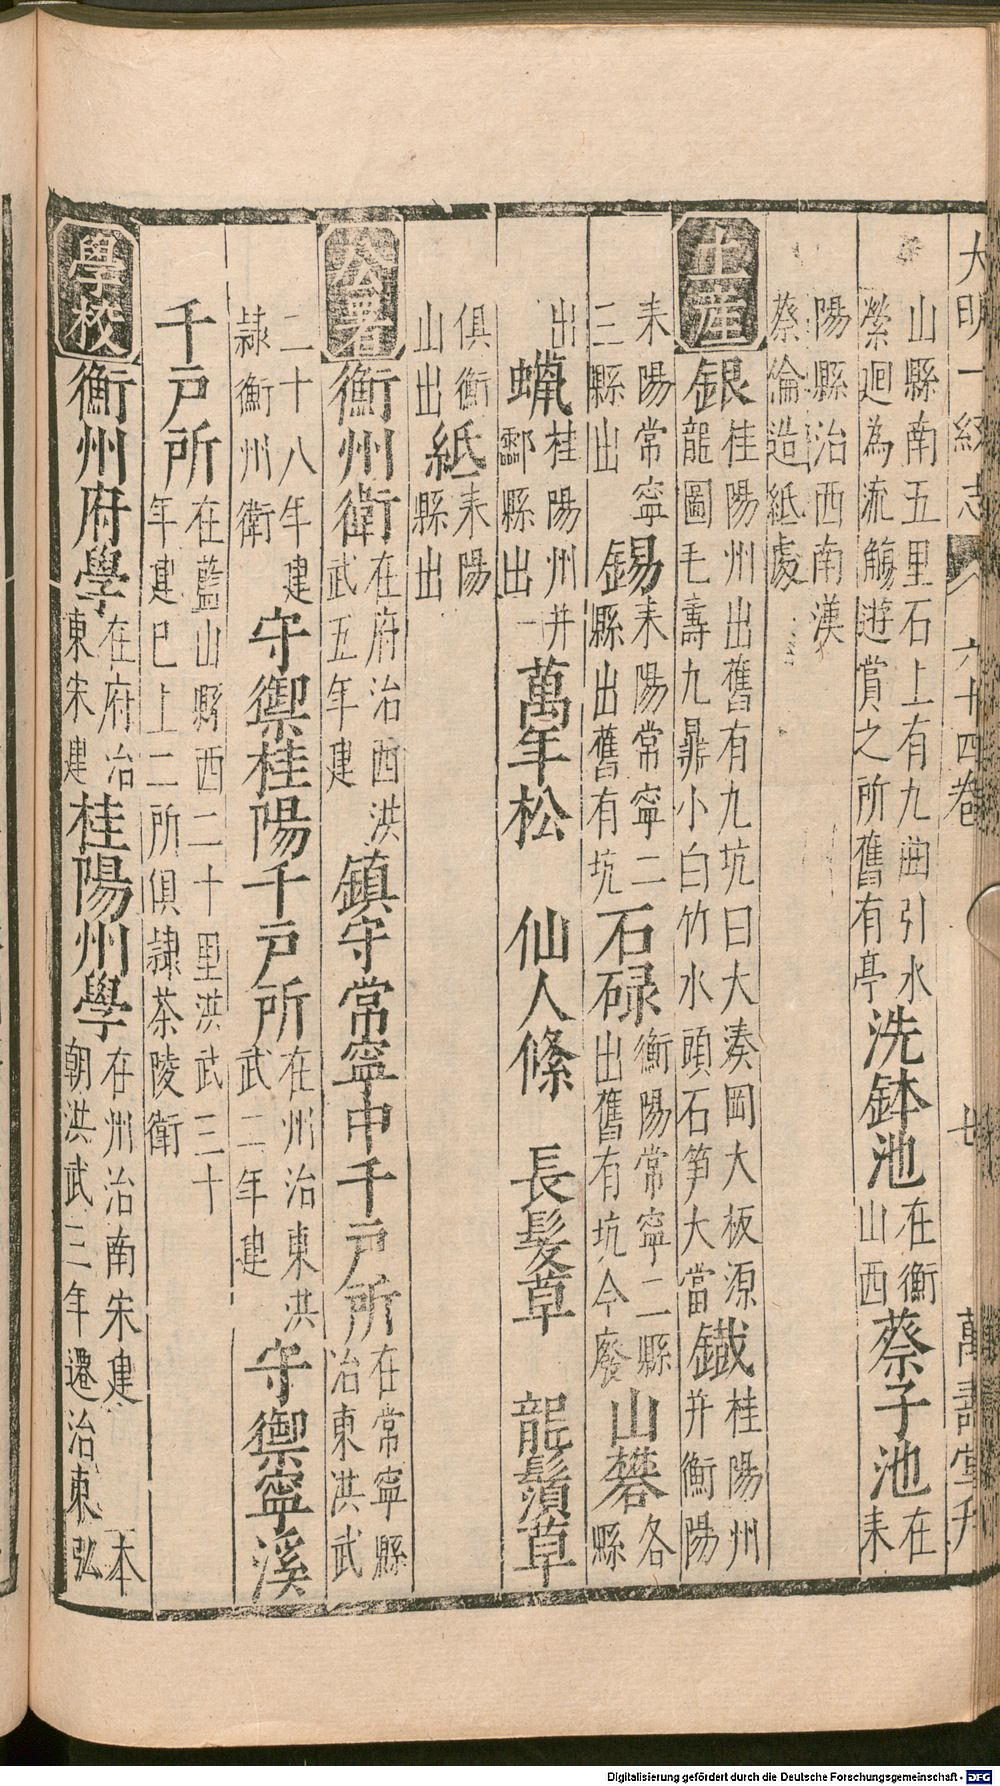 大明一統志 六十四卷 七 萬壽堂刋
山縣南五里石上有九曲引水
縈迴為流觴遊賞之所舊有亭
洗鉢池
在衡
山西
蔡子池
在
耒
陽縣治西南漢
蔡倫造紙處
土產
銀
桂陽州出舊有九坑曰大湊岡大板源
龍圖毛壽九鼎小白竹水頭石笋大富
鐵
桂陽州
并衡陽
耒陽常寧
三縣出
錫
耒陽常寧二
縣出舊有坑
石碌
衡陽常寧二縣
出舊有坑今廢
山礬
各
縣
出
蠟
桂陽州并
酃縣出
萬年松
仙人絛
長髮草
龍鬚草
俱衡
山出
紙
耒陽
縣出
公署
衡州衛
在府治西洪
武五年建
鎮守常寧中千戶所
在常寧縣
治東洪武
二十八年建
隷衡州衛
守禦桂陽千戶所
在州治東洪
武二年建
守禦寧溪
千戶所
在藍山縣西二十里洪武三十
年建已上二所俱隷茶陵衛
學校
衡州府學
在府治
東宋建
桂陽州學
在州治南宋建 本
朝洪武三年遷治東弘
Digitalisierung gefördert durch die Deutsche Forschungsgemeinschaft - DFG